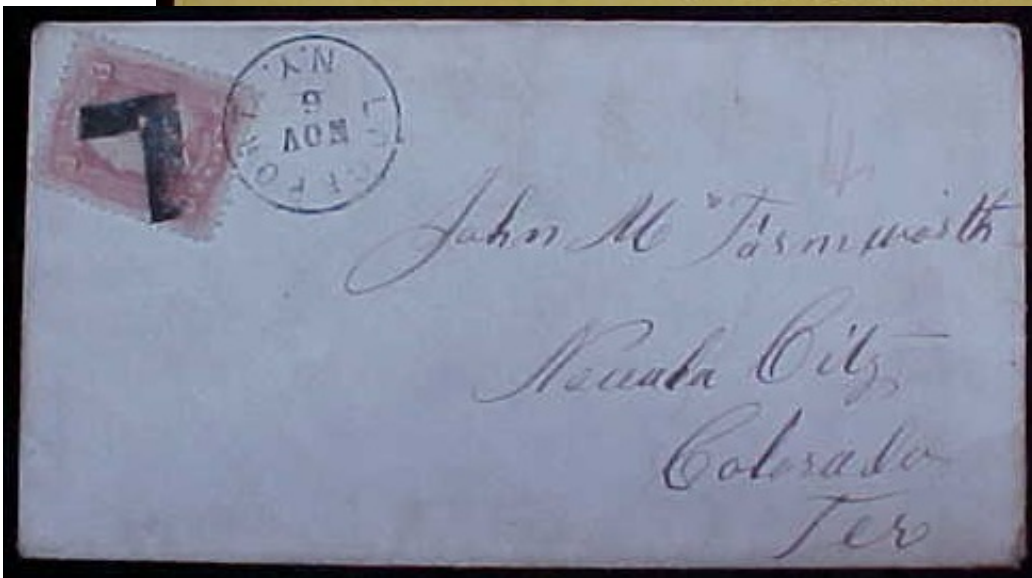 N.Y.
NOV
John M Farnsworth
Nevada City
Colorado
Ter